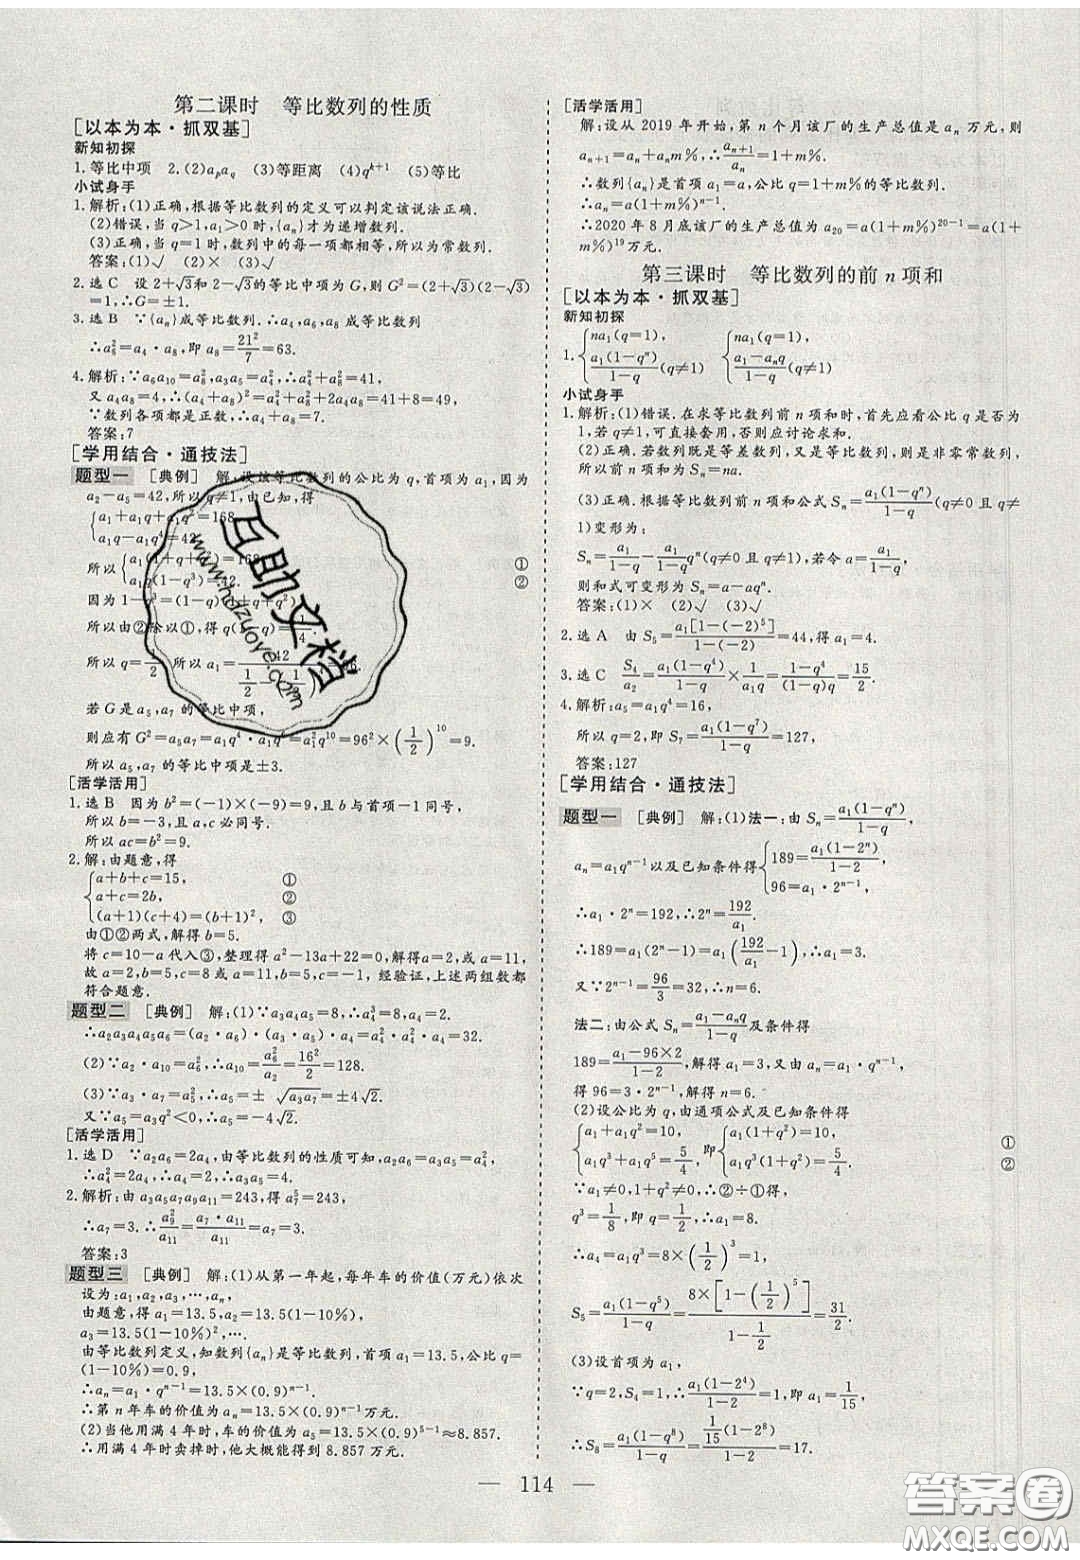 第二课时　等比数列的性质
[以本为本·抓双基]
新知初探
1.等比中项 2.(2)aₚa_q (3)等距离 (4)q^{k+1} (5)等比
小试身手
1.解析:(1)正确,根据等比数列的定义可以判定该说法正确.
(2)错误,当 q>1,a₁>0 时,{aₙ}才为递增数列.
(3)正确,当 q=1 时,数列中的每一项都相等,所以为常数列.
答案:(1)√ (2)× (3)√
2.选 C 设 2+√3和 2-√3的等比中项为 G,则 G²=(2+√3)(2-√3)
=1,∴G=±1.
3.选 B ∵{aₙ}成等比数列.∴a₄,a₆,a₈ 成等比数列
∴a₆²=a₄·a₈,即 a₈=21²/7=63.
4.解析:∵a₆a₁₀=a₈²,a₃a₅=a₄²,∴a₄²+a₈²=41,
又 a₄a₈=4,∴(a₄+a₈)²=a₄²+a₈²+2a₄a₈=41+8=49.
∵数列各项都是正数,∴a₄+a₈=7.
答案:7
[学用结合·通技法]
题型一 [典例] 解:设该等比数列的公比为 q,首项为 a₁,因为
a₂-a₅=42,所以 q≠1,由已知,得
{a₁+a₁q+a₁q²=168,
a₁q-a₁q⁴=42,
所以{a₁(1+q+q²)=168, ①
a₁q(1-q³)=42. ②
因为 1-q³=(1-q)(1+q+q²)
所以由②除以①,得 q(1-q)=1/4.
所以 q=1/2. 所以 a₁=42/(1/2-(1/2)⁴)=96.
若 G 是 a₅,a₇ 的等比中项,
则应有 G²=a₅a₇=a₁q⁴·a₁q⁶=a₁²q¹⁰=96²×(1/2)¹⁰=9.
所以 a₅,a₇ 的等比中项是±3.
[活学活用]
1.选 B 因为 b²=(-1)×(-9)=9,且 b 与首项-1 同号,
所以 b=-3,且 a,c 必同号.
所以 ac=b²=9.
2.解:由题意,得
{a+b+c=15, ①
a+c=2b, ②
(a+1)(c+4)=(b+1)², ③
由①②两式,解得 b=5.
将 c=10-a 代入③,整理得 a²-13a+22=0,解得 a=2,或 a=11,
故 a=2,b=5,c=8 或 a=11,b=5,c=-1,经验证,上述两组数都
符合题意.
题型二 [典例] 解:(1)∵a₃a₄a₅=8,∴a₄³=8,a₄=2.
∴a₂a₃a₄a₅a₆=(a₂·a₆)·(a₃·a₅)·a₄=a₄²·a₄²·a₄=32.
(2)∵a₂·a₁₀=a₆²,∴a₁₀=a₆²/a₂=16²/2=128.
(3)∵a₃·a₇=a₅²,∴a₅=±√(a₃a₇)=±4√2.
又∵a₅=a₃q²<0,∴a₅=-4√2.
[活学活用]
1.选 D ∵a₂a₆=2a₄,由等比数列的性质可知,a₂a₆=a₃a₅=a₄²,
∴a₄²=2a₄,∴a₄=2,∴a₃a₅=4.
2.解析:由 a₃a₅a₇a₉a₁₁=243,得 a₇⁵=243,
∴a₇=3.∴a₉²/a₁₁=(a₇·a₁₁)/a₁₁=a₇=3.
答案:3
题型三 [典例] 解:(1)从第一年起,每年车的价值(万元)依次
设为:a₁,a₂,a₃,…,aₙ,
由题意,得 a₁=13.5,a₂=13.5(1-10%),
a₃=13.5(1-10%)²,….
由等比数列定义,知数列{aₙ}是等比数列,首项 a₁=13.5,公比 q=
(1-10%)=0.9,
∴aₙ=a₁·q^{n-1}=13.5×(0.9)^{n-1}.
∴第 n 年车的价值为 aₙ=13.5×(0.9)^{n-1}万元.
(2)当他用满 4 年时,车的价值为 a₅=13.5×(0.9)^{5-1}≈8.857.
∴用满 4 年时卖掉时,他大概能得到 8.857 万元.
[活学活用]
解:设从 2019 年开始,第 n 个月该厂的生产总值是 aₙ 万元,则
a_{n+1}=aₙ+aₙm%,∴a_{n+1}/aₙ=1+m%.
∴数列{aₙ}是首项 a₁=a,公比 q=1+m%的等比数列.
∴aₙ=a(1+m%)^{n-1}.
∴2020 年 8 月底该厂的生产总值为 a₂₀=a(1+m%)^{20-1}=a(1+
m%)¹⁹万元.
第三课时　等比数列的前 n 项和
[以本为本·抓双基]
新知初探
1.{na₁(q=1), a₁(1-qⁿ)/(1-q)(q≠1) {na₁(q=1), (a₁-aₙq)/(1-q)(q≠1)
小试身手
1.解析:(1)错误.在求等比数列前 n 项和时,首先应看公比 q 是否为
1,若 q≠1,可直接套用,否则应讨论求和.
(2)正确.若数列既是等差数列,又是等比数列,则是非零常数列,
所以前 n 项和为 Sₙ=na.
(3)正确.根据等比数列前 n 项和公式 Sₙ=a₁(1-qⁿ)/(1-q)(q≠0 且 q≠
1)变形为:
Sₙ=a₁/(1-q)-a₁/(1-q)qⁿ(q≠0 且 q≠1),若令 a=a₁/(1-q),
则和式可变形为 Sₙ=a-aqⁿ.
答案:(1)× (2)√ (3)√
2.选 A 由 S₅=a₁[1-(-2)⁵]/(1-(-2))=44,得 a₁=4.
3.选 C S₄/a₂=a₁(1-q⁴)/(1-q)×1/(a₁q)=(1-q⁴)/((1-q)q)=15/2.
4.解析:a₅=a₁q⁴=16,
∴q=2,即 S₇=a₁(1-q⁷)/(1-q)=127,
答案:127
[学用结合·通技法]
题型一 [典例] 解:(1)法一:由 Sₙ=a₁(1-qⁿ)/(1-q),
aₙ=a₁q^{n-1}以及已知条件得{189=a₁(1-2ⁿ)/(1-2), 96=a₁·2^{n-1},
∴a₁·2ⁿ=192,∴2ⁿ=192/a₁.
∴189=a₁(2ⁿ-1)=a₁(192/a₁-1),∴a₁=3.
又∵2^{n-1}=96/3=32,∴n=6.
法二:由公式 Sₙ=(a₁-aₙq)/(1-q)及条件得
189=(a₁-96×2)/(1-2),解得 a₁=3,又由 aₙ=a₁·q^{n-1},
得 96=3·2^{n-1},解得 n=6.
(2)设公比为 q,由通项公式及已知条件得
{a₁+a₁q²=10, a₁q³+a₁q⁵=5/4, 即{a₁(1+q²)=10, ①
a₁q³(1+q²)=5/4. ②
∵a₁≠0,1+q²≠0,∴②÷①得,
q³=1/8,即 q=1/2,∴a₁=8.
∴a₄=a₁q³=8×(1/2)³=1,
S₅=a₁(1-q⁵)/(1-q)=8×[1-(1/2)⁵]/(1-1/2)=31/2.
(3)设首项为 a₁,
∵q=2,S₄=1,∴a₁(1-2⁴)/(1-2)=1,即 a₁=1/15,
∴S₈=a₁(1-q⁸)/(1-q)=1/15(1-2⁸)/(1-2)=17.
— 114 —
互助文档
www.huzuovre.com
答案圈
MXQE.COM